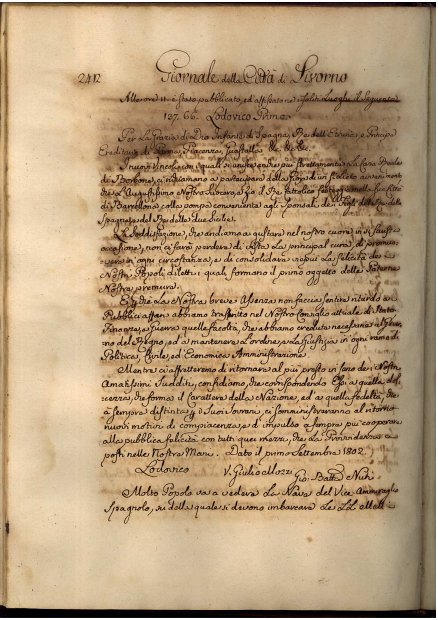 2412 Giornale della Città di Livorno
Alle ore 11 è stato pubblicato, ed affissato ne' soliti Luoghi il Seguente
127. 66. Lodovico Primo
Per La Grazia di Dio Infante di Spagna, Re dell'Etruria, e Principe
Ereditario di Parma, Piacenza, Guastalla &c. &c. &c.
I nuovi Vincoli, con i quali si unisce anche più strettamente La Casa Reale
di Borbone, ci richiamano a partecipare della gioja di un sì lieto avvenimento
che l'Augustissimo Nostro Suocero, e Zio il Re Cattolico festeggia nella sua Città
di Barcellona colla pompa conveniente agli Sponsali de' Figli della sua della
Spagna, e del Re delle due Sicilie.
La Soddisfazione, che andiamo a gustare nel nostro cuore in sì fausta
occasione, non ci farà perdere di vista La principal cura di promuo=
vere in ogni circostanza, e di consolidare sopra La felicità de'
Nostri Popoli diletti i quali formano il primo oggetto delle Paterne
Nostre premure.
E perchè La Nostra breve Assenza non faccia sentire ritardo a'
Pubblici affari abbiamo trasferito nel Nostro Consiglio attuale di Stato
Finanze, e Guerra quelle facoltà, che abbiamo credute necessarie al Gover=
no del Regno, ed a mantenere L'ordine, e La Giustizia in ogni ramo di
Politica, Civile, ed Economica Amministrazione
Mentre ci affretteremo di ritornare al più presto in seno dei Nostri
Amatissimi Sudditi, confidiamo, che corrispondendo Essi a quella dol=
cezza, che forma il Carattere della Nazione, ed a quella fedeltà, che
à sempre distinta i Suoi Sovrani, ci somministreranno al ritorno
nuovi motivi di compiacenza, e d'impulso a sempre più cooperare
alla pubblica felicità con tutti quei mezzi, che La Provvidenza à
posti nelle Nostre Mani. Dato il primo Settembre 1802.
Lodovico V. Giulio Mozzi
Gio. Batt.
Molto Popolo va a vedere La Nave del Vice Ammiraglio
Spagnolo, su della quale si devono imbarcare Le LL. MM.